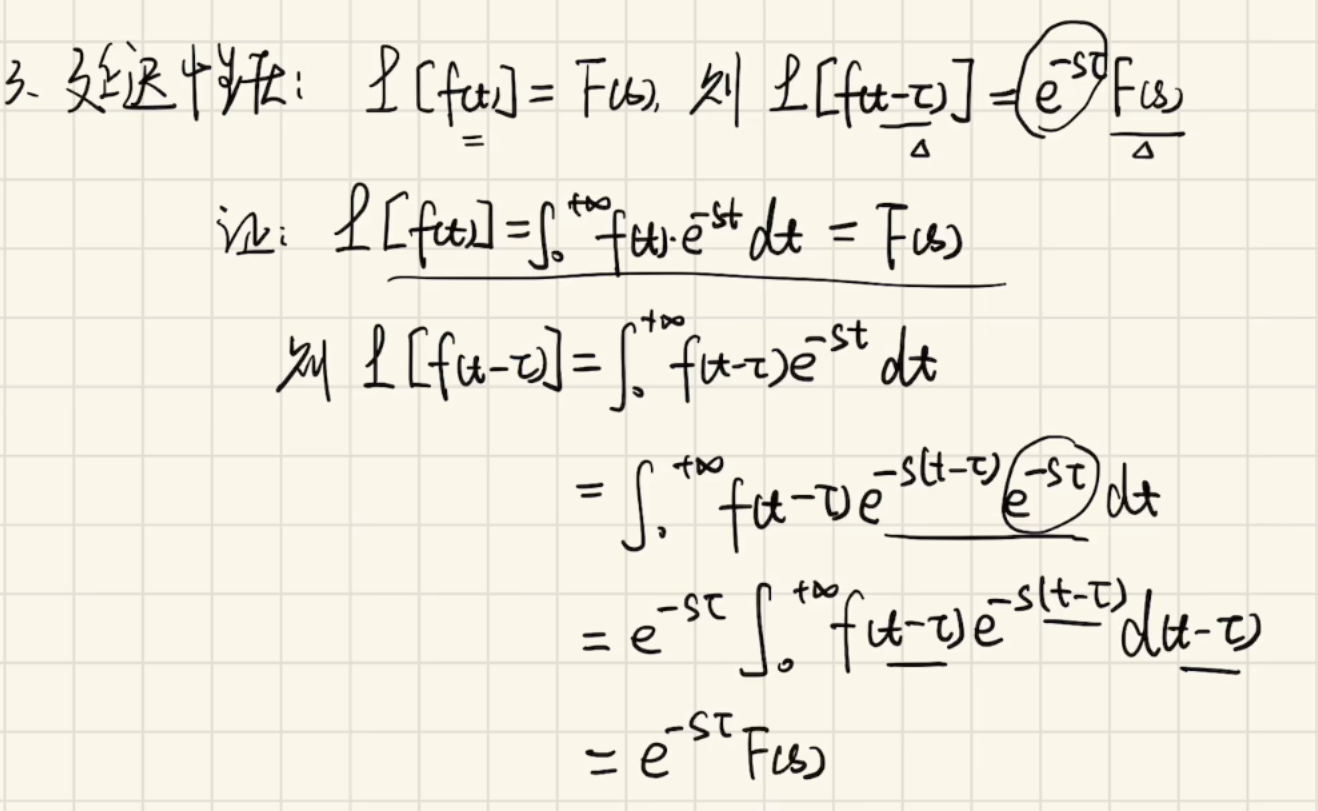 3、延迟性质: ℒ[f(t)] = F(s), 则 ℒ[f(t-τ)] = e^{-sτ}F(s)
证: ℒ[f(t)] = ∫₀^{+∞} f(t)·e^{-st} dt = F(s)
则 ℒ[f(t-τ)] = ∫₀^{+∞} f(t-τ)e^{-st} dt
= ∫₀^{+∞} f(t-τ)e^{-s(t-τ)} e^{-sτ} dt
= e^{-sτ} ∫₀^{+∞} f(t-τ)e^{-s(t-τ)} d(t-τ)
= e^{-sτ} F(s)